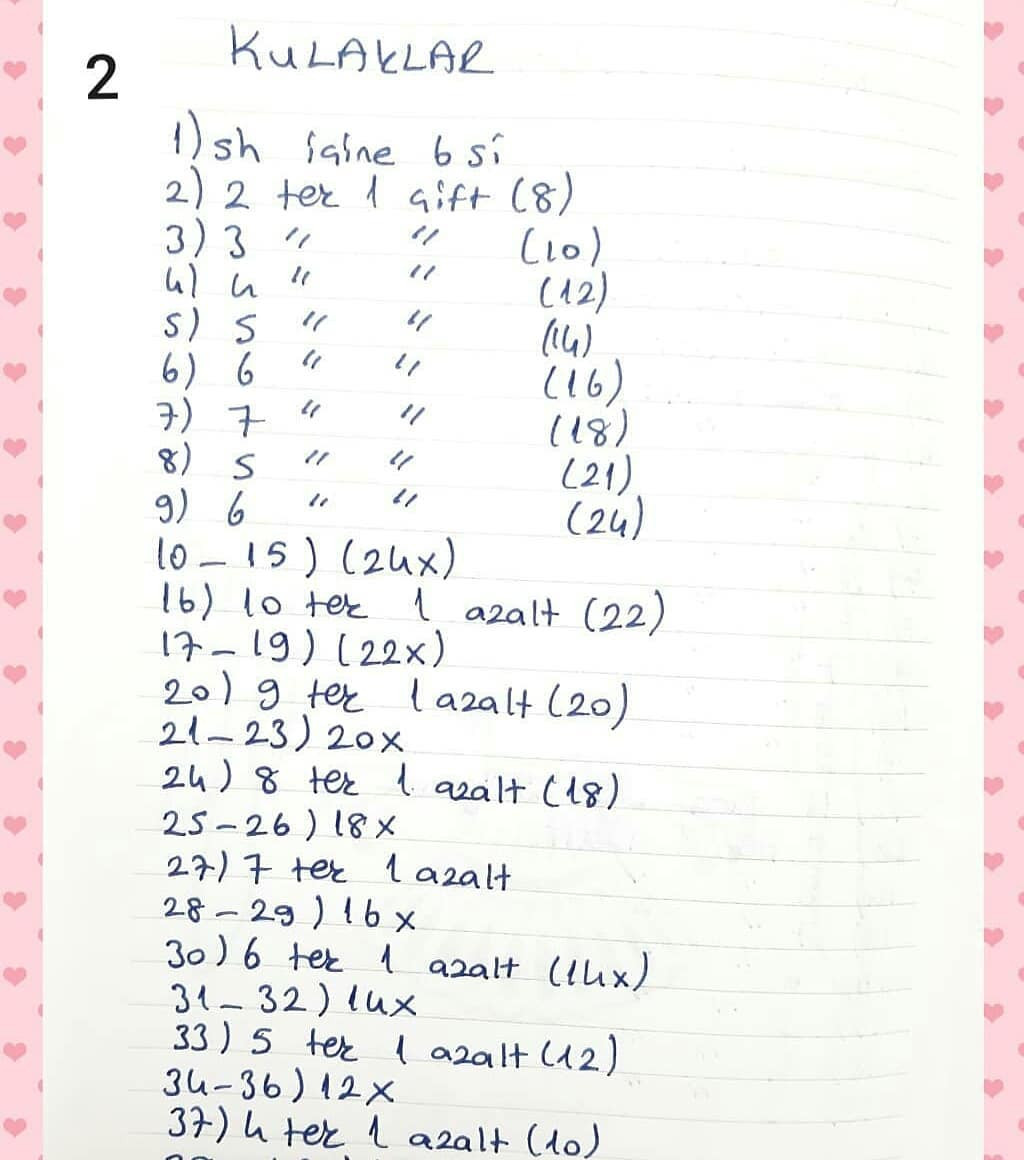 2
KULAKLAR
1) sh içine 6 sı
2) 2 tek 1 çift (8)
3) 3 " " (10)
4) 4 " " (12)
5) 5 " " (14)
6) 6 " " (16)
7) 7 " " (18)
8) 5 " " (21)
9) 6 " " (24)
10 - 15) (24x)
16) 10 tek 1 azalt (22)
17 - 19) (22x)
20) 9 tek 1 azalt (20)
21 - 23) 20x
24) 8 tek 1 azalt (18)
25 - 26) 18x
27) 7 tek 1 azalt
28 - 29) 16x
30) 6 tek 1 azalt (14x)
31 - 32) 14x
33) 5 tek 1 azalt (12)
34 - 36) 12x
37) 4 tek 1 azalt (10)